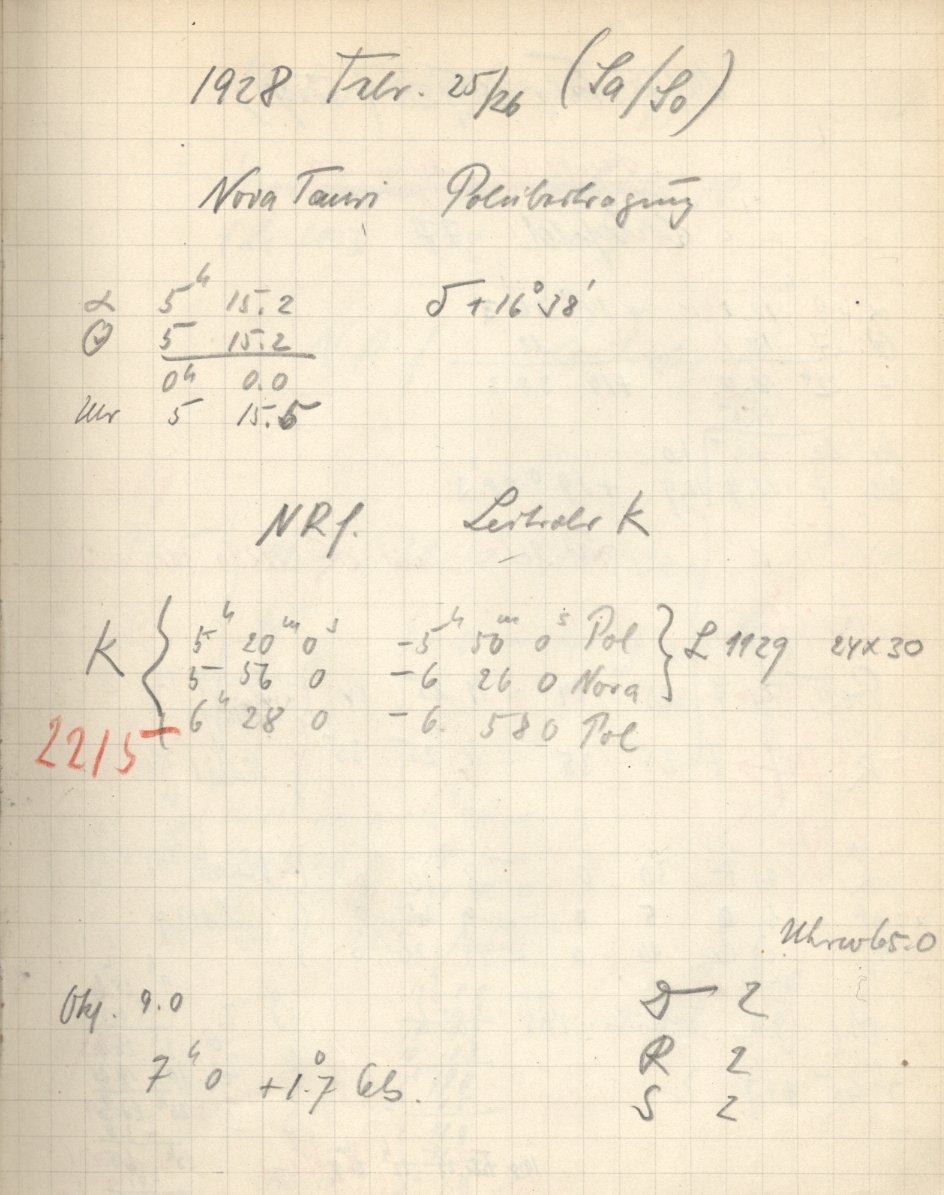 1928 Febr. 25/26 (Sa/So)
Nova Tauri Polübertragung
α 5ʰ 15.2 δ +16° 38'
5 15.2
0ʰ 0.0
Uhr 5 15.5
NRf. Leitrohr K
K { 5ʰ 20ᵐ 0ˢ - 5ʰ 50ᵐ 0ˢ Pol } L 1129 24x30
5 56 0 - 6 26 0 Nova
6ʰ 28 0 - 6 58 0 Pol
2215
Uhrw 65.0
Okj. 9.0 D 2
R 2
7ʰ 0 +1.°7
S 2